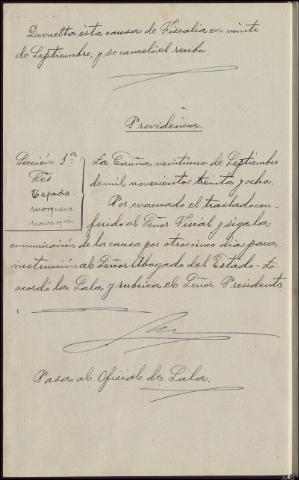 Devuelta esta causa de Fiscalia en veinte
de Septiembre, y se canceló el recibo.
Providencia.
Sección 1ª
Tres.
Tepeda
La Coruña, veintiuno de Septiembre
de mil novecientos treinta y ocho.
Por evacuado el traslado con-
ferido al Señor Fiscal y siga la
comunicación de la causa por otros cinco dias para
instrucción al Señor Abogado del Estado. Lo
acordó la Sala y rubrica el Señor Presidente
Pasa al Oficial de Sala.